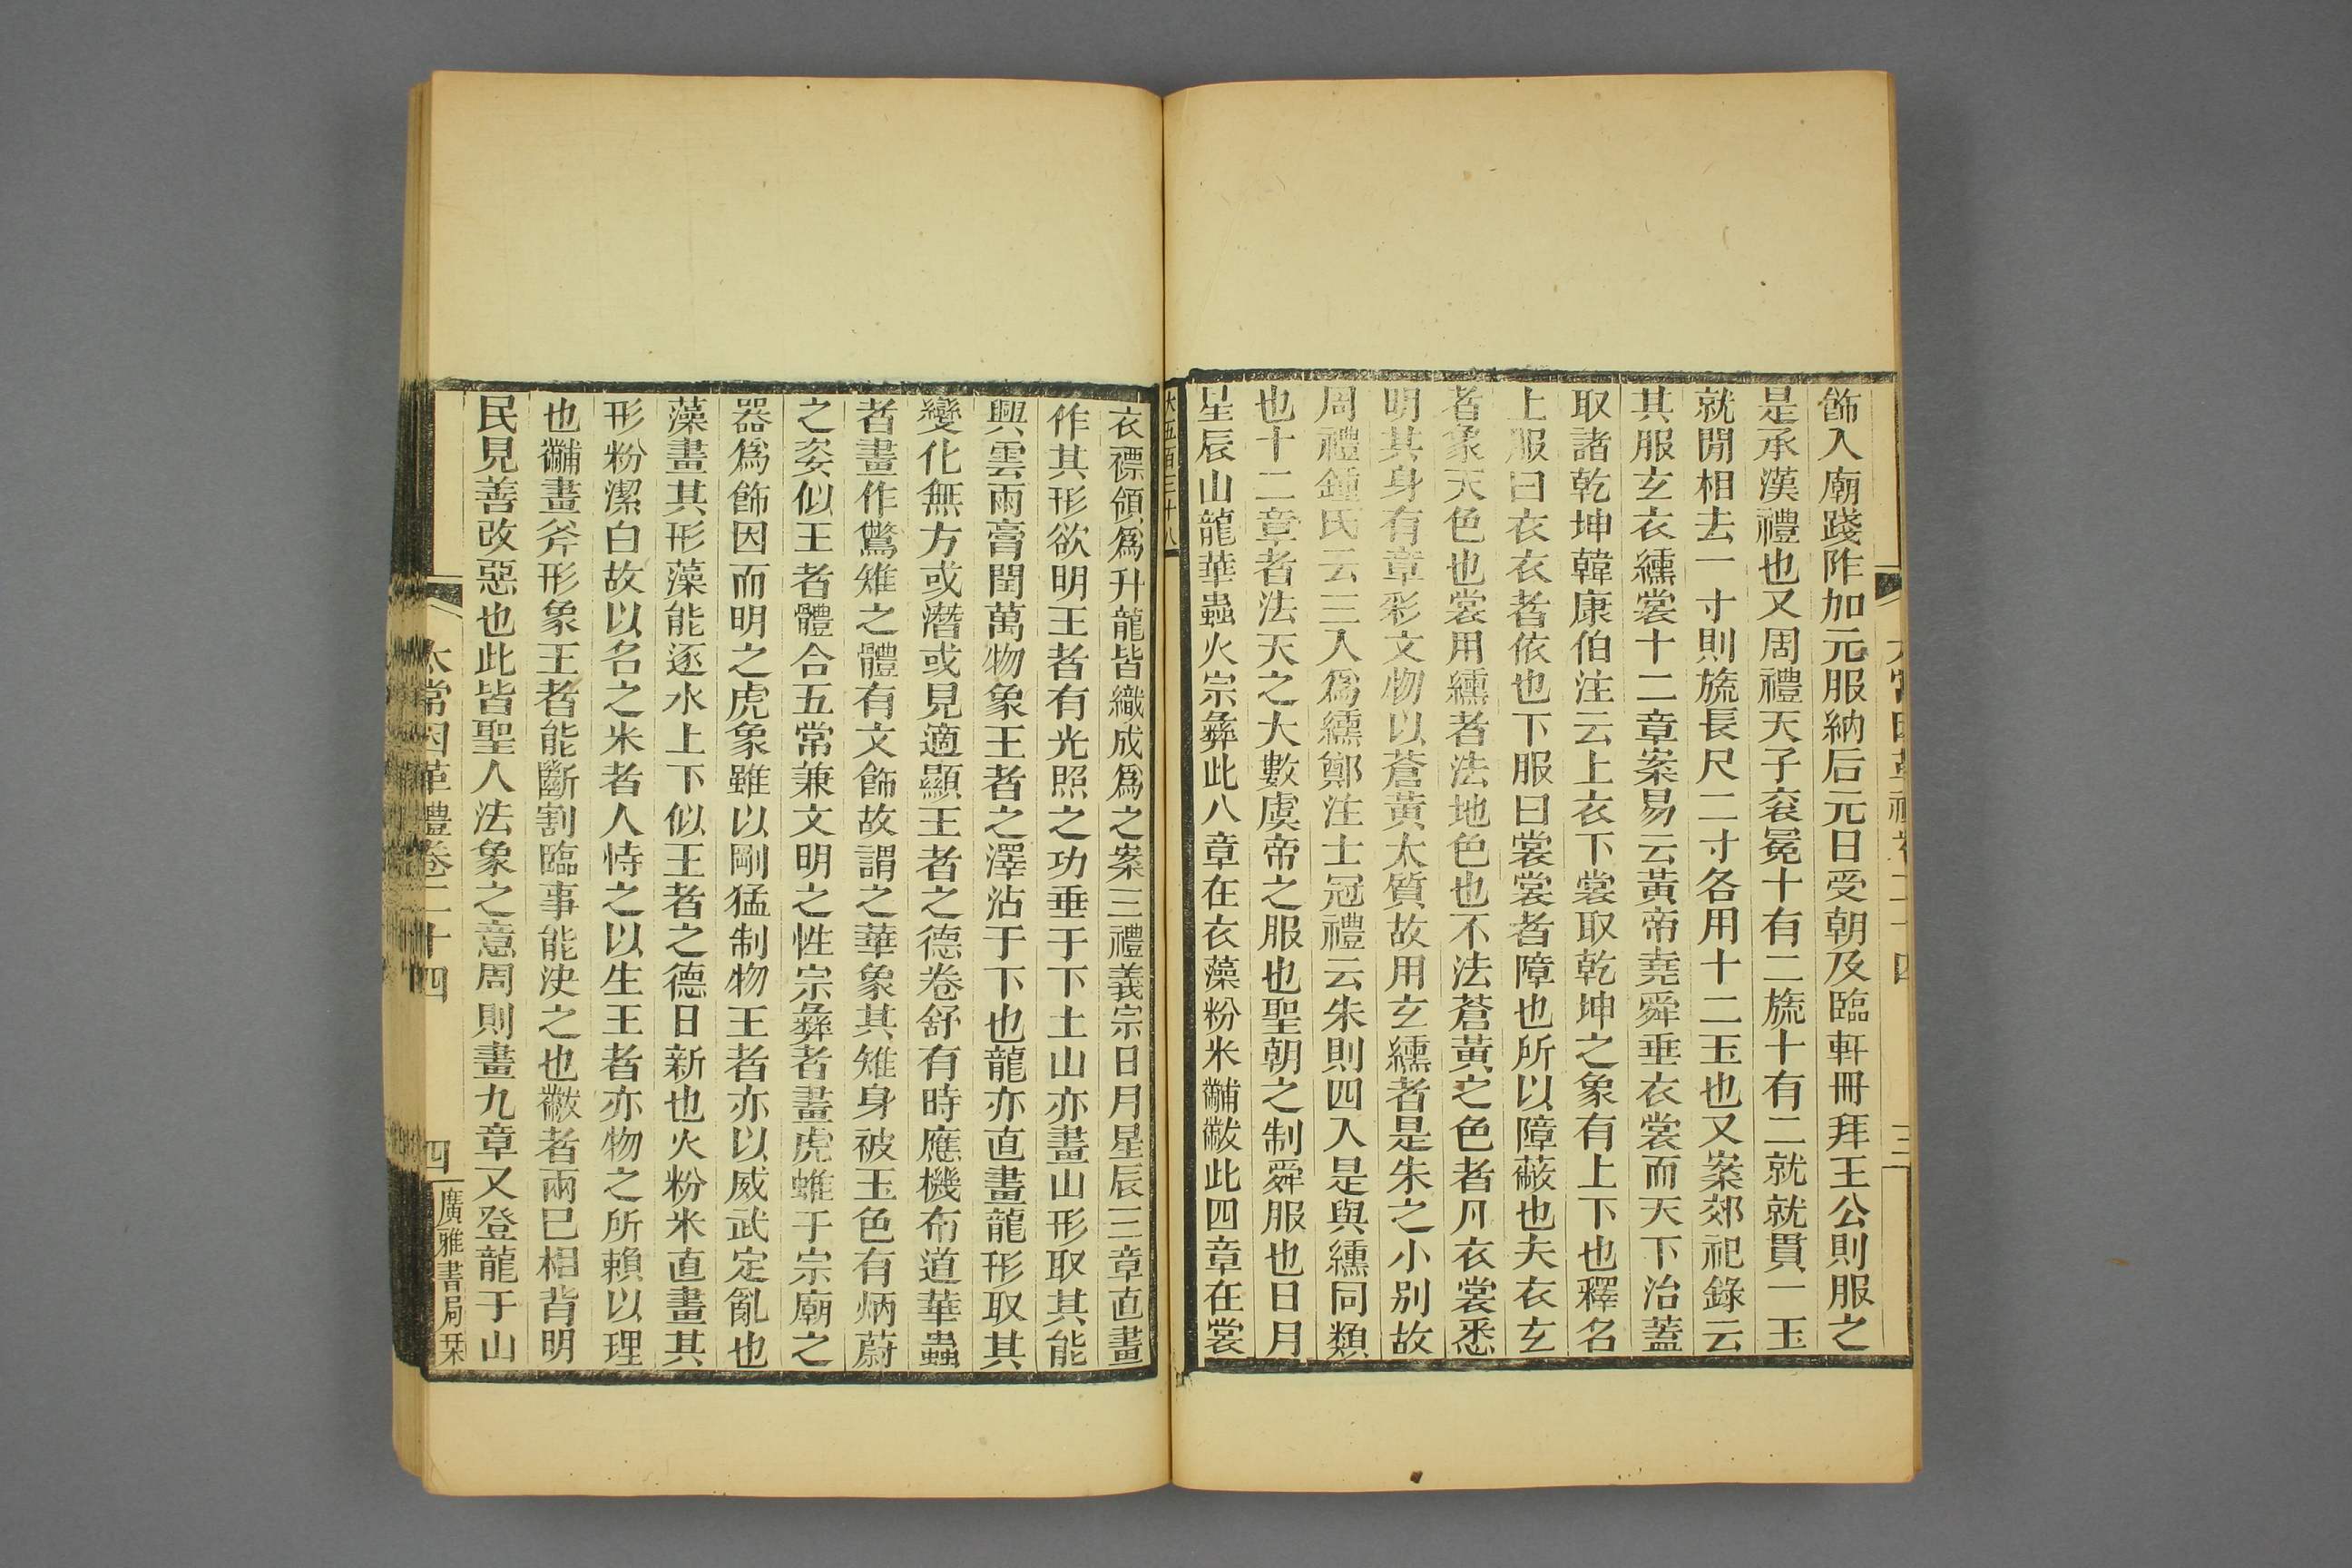 飾入廟踐阼加元服納后元日受朝及臨軒冊拜王公則服之
是承漢禮也又周禮天子衮冕十有二旒十有二就就貫一玉
就閒相去一寸則旒長尺二寸各用十二玉也又案郊祀錄云
其服玄衣纁裳十二章案易云黃帝堯舜垂衣裳而天下治蓋
取諸乾坤韓康伯注云上衣下裳取乾坤之象有上下也釋名
上服曰衣衣者依也下服曰裳裳者障也所以障蔽也夫衣玄
者象天色也裳用纁者法地色也不法蒼黃之色者凡衣裳悉
明其身有章彩文物以蒼黃太質故用玄纁者是朱之小別故
周禮鍾氏云三入爲纁鄭注士冠禮云朱則四入是與纁同類
也十二章者法天之大數虞帝之服也聖朝之制舜服也日月
星辰山龍華蟲火宗彝此八章在衣藻粉米黼黻此四章在裳
太常因革禮卷二十四
三
大五百三十八
衣褾領爲升龍皆織成爲之案三禮義宗日月星辰三章直畫
作其形欲明王者有光照之功垂于下土山亦畫山形取其能
興雲雨膏閏萬物象王者之澤沾于下也龍亦直畫龍形取其
變化無方或潛或見適顯王者之德卷舒有時應機布道華蟲
者畫作鷩雉之體有文飾故謂之華象其雉身被玉色有炳蔚
之姿似王者體合五常兼文明之性宗彝者畫虎蜼于宗廟之
器爲飾因而明之虎象雖以剛猛制物王者亦以威武定亂也
藻畫其形藻能逐水上下似王者之德日新也火粉米直畫其
形粉潔白故以名之米者人恃之以生王者亦物之所賴以理
也黼畫斧形象王者能斷割臨事能決之也黻者兩巳相背明
民見善改惡也此皆聖人法象之意周則畫九章又登龍于山
太常因革禮卷二十四
四
廣雅書局栞